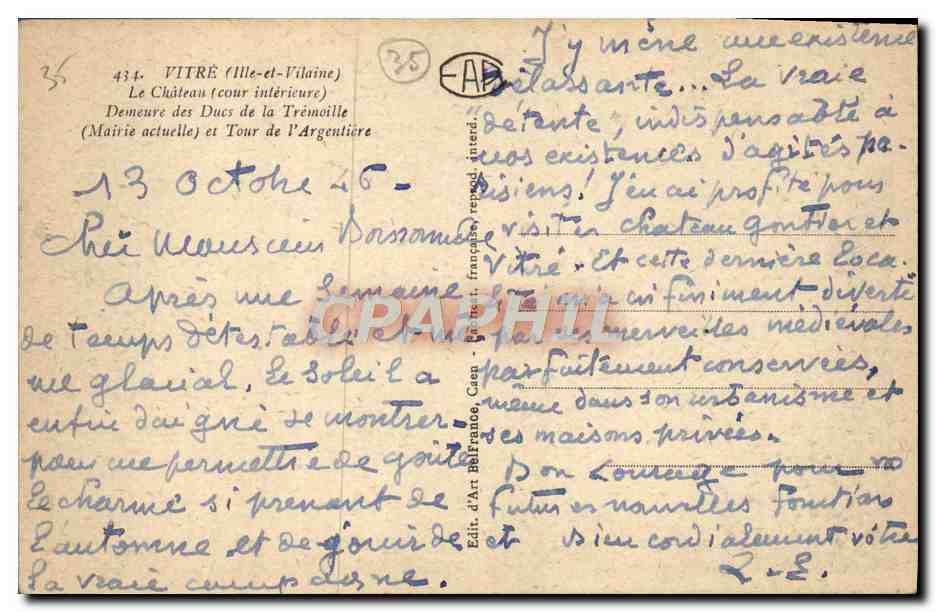 35
434. VITRÉ (Ille-et-Vilaine)
Le Château (cour intérieure)
Demeure des Ducs de la Trémoille
(Mairie actuelle) et Tour de l'Argentière
13 Octobre 46 -
Cher Monsieur Boissonnade
Après une Semaine
de temps détestable et
me glacial, le soleil a
enfin daigné se montrer -
pour me permettre de goûter
le charme si prenant de
l'automne et de jouir de
la vraie campagne.
Edit. d'Art BelFrance, Caen - Protect. française, reprod. interd.
35
EAP
CPAPHIL
J'y mène une existence
délassante... La vraie
"détente", indispensable à
nos existences d'agités pa-
risiens! J'en ai profité pour
visiter Chateau Gontier et
Vitré. Et cette dernière loca-
lité m'a infiniment diverti
par ses merveilles médiévales
parfaitement conservées,
même dans son urbanisme et
ses maisons privées.
Bon Courage pour vos
futures nouvelles fonctions
et bien cordialement vôtre
L.-E.